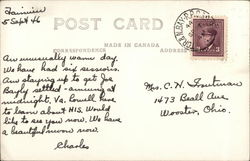 Fairview
5 Sept 46
POST CARD
MADE IN CANADA
CORRESPONDENCE
ADDRESS
An unusually warm day.
We have had six sessions.
Am staying up to get Joe
Bagley settled - arriving at
midnight, Va. Powell have
to know about HIS. Would
like to see you now. We have
a beautiful moon now.
Charles
Mrs. C. H. Troutman
1473 Beall Ave
Wooster, Ohio.
3